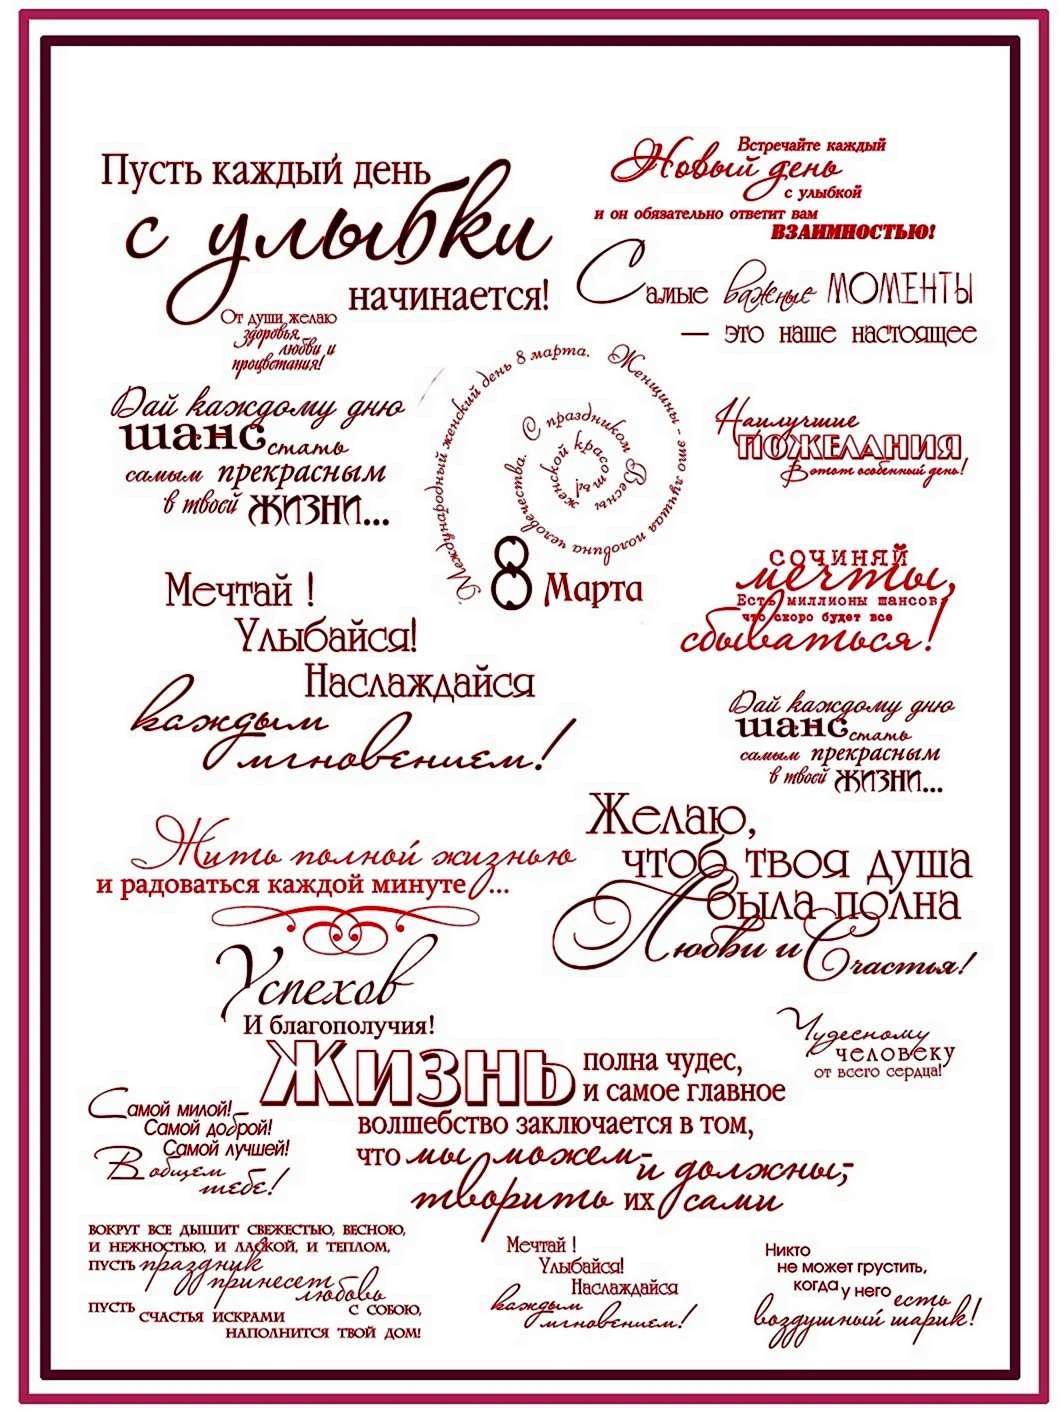 Пусть каждый день
с улыбки
начинается!
От души желаю
здоровья,
любви и
процветания!
Встречайте каждый
Новый день
с улыбкой
и он обязательно ответит вам
ВЗАИМНОСТЬЮ!
Самые важные МОМЕНТЫ
— это наше настоящее
Дай каждому дню
шанс стать
самым прекрасным
в твоей ЖИЗНИ...
Международный женский день 8 марта. Женщины - это лучшая половина человечества. С праздником Весны женской красоты
8 Марта
Наилучшие
ПОЖЕЛАНИЯ
В этот особенный день!
Мечтай !
Улыбайся!
Наслаждайся
каждым
мгновением!
СОЧИНЯЙ
мечты,
Есть миллионы шансов,
что скоро будет все
сбываться!
Дай каждому дню
шанс стать
самым прекрасным
в твоей ЖИЗНИ...
Жить полной жизнью
и радоваться каждой минуте...
Желаю,
чтоб твоя душа
была полна
Любви и Счастья!
Успехов
И благополучия!
Чудесному
человеку
от всего сердца!
Жизнь полна чудес,
и самое главное
волшебство заключается в том,
что мы можем- и должны,-
творить их сами
Самой милой!
Самой доброй!
Самой лучшей!
В общем
тебе!
ВОКРУГ ВСЕ ДЫШИТ СВЕЖЕСТЬЮ, ВЕСНОЮ,
И НЕЖНОСТЬЮ, И ЛАСКОЙ, И ТЕПЛОМ,
ПУСТЬ праздник
принесет
любовь
С СОБОЮ,
ПУСТЬ
СЧАСТЬЯ ИСКРАМИ
НАПОЛНИТСЯ ТВОЙ ДОМ!
Мечтай !
Улыбайся!
Наслаждайся
каждым
мгновением!
Никто
не может грустить,
когда у него есть
воздушный шарик!